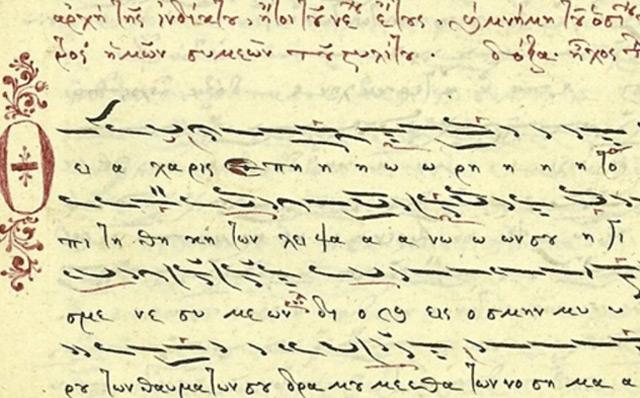 ἀρχὴ τῆς ἰνδίκτου, ἤτοι τοῦ νέου ἔτους, καὶ μνήμη τοῦ ὁσίου
ἡμῶν συμεὼν τοῦ στυλίτου δόξα ἦχος
Θ ει α χαρις πη η η ω ω ρη η η η το
πι τη θη κη των λει ψα α α νω ω ων σου η γι
σμε νε συ με ων δι ο και εις ο σμην μυ υ
ρου των θαυματων σου δρα μου με εθα των νο ση μα α